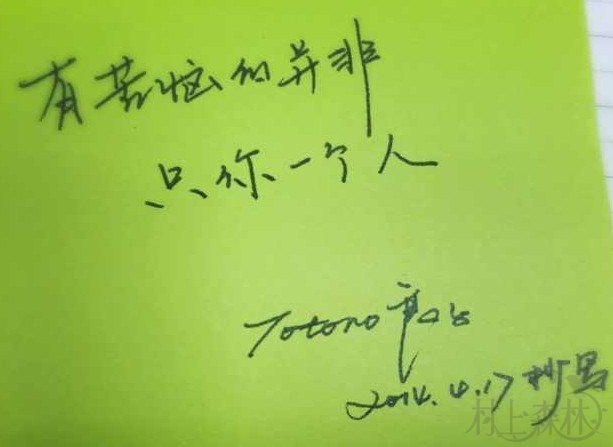 有苦恼的并非
只你一个人
Totoro
2014.4.17 抄写
村上森林